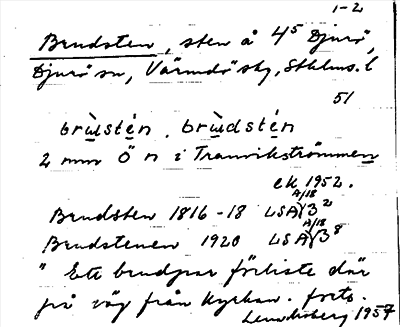 1-2
Brudsten, sten å 4⁵ Djurö,
Djurö sn, Värmdö skg, Sthlms. l
51
brùlstén, brùdstén
2 mm Ö n i Tranvikströmmen
ek 1952.
Brudsten 1816-18 LSA A/18 3²
Brudstenen 1920 LSA A/18 3⁸
" Ett brudpar förliste där
på väg från kyrkan. forts.
1957